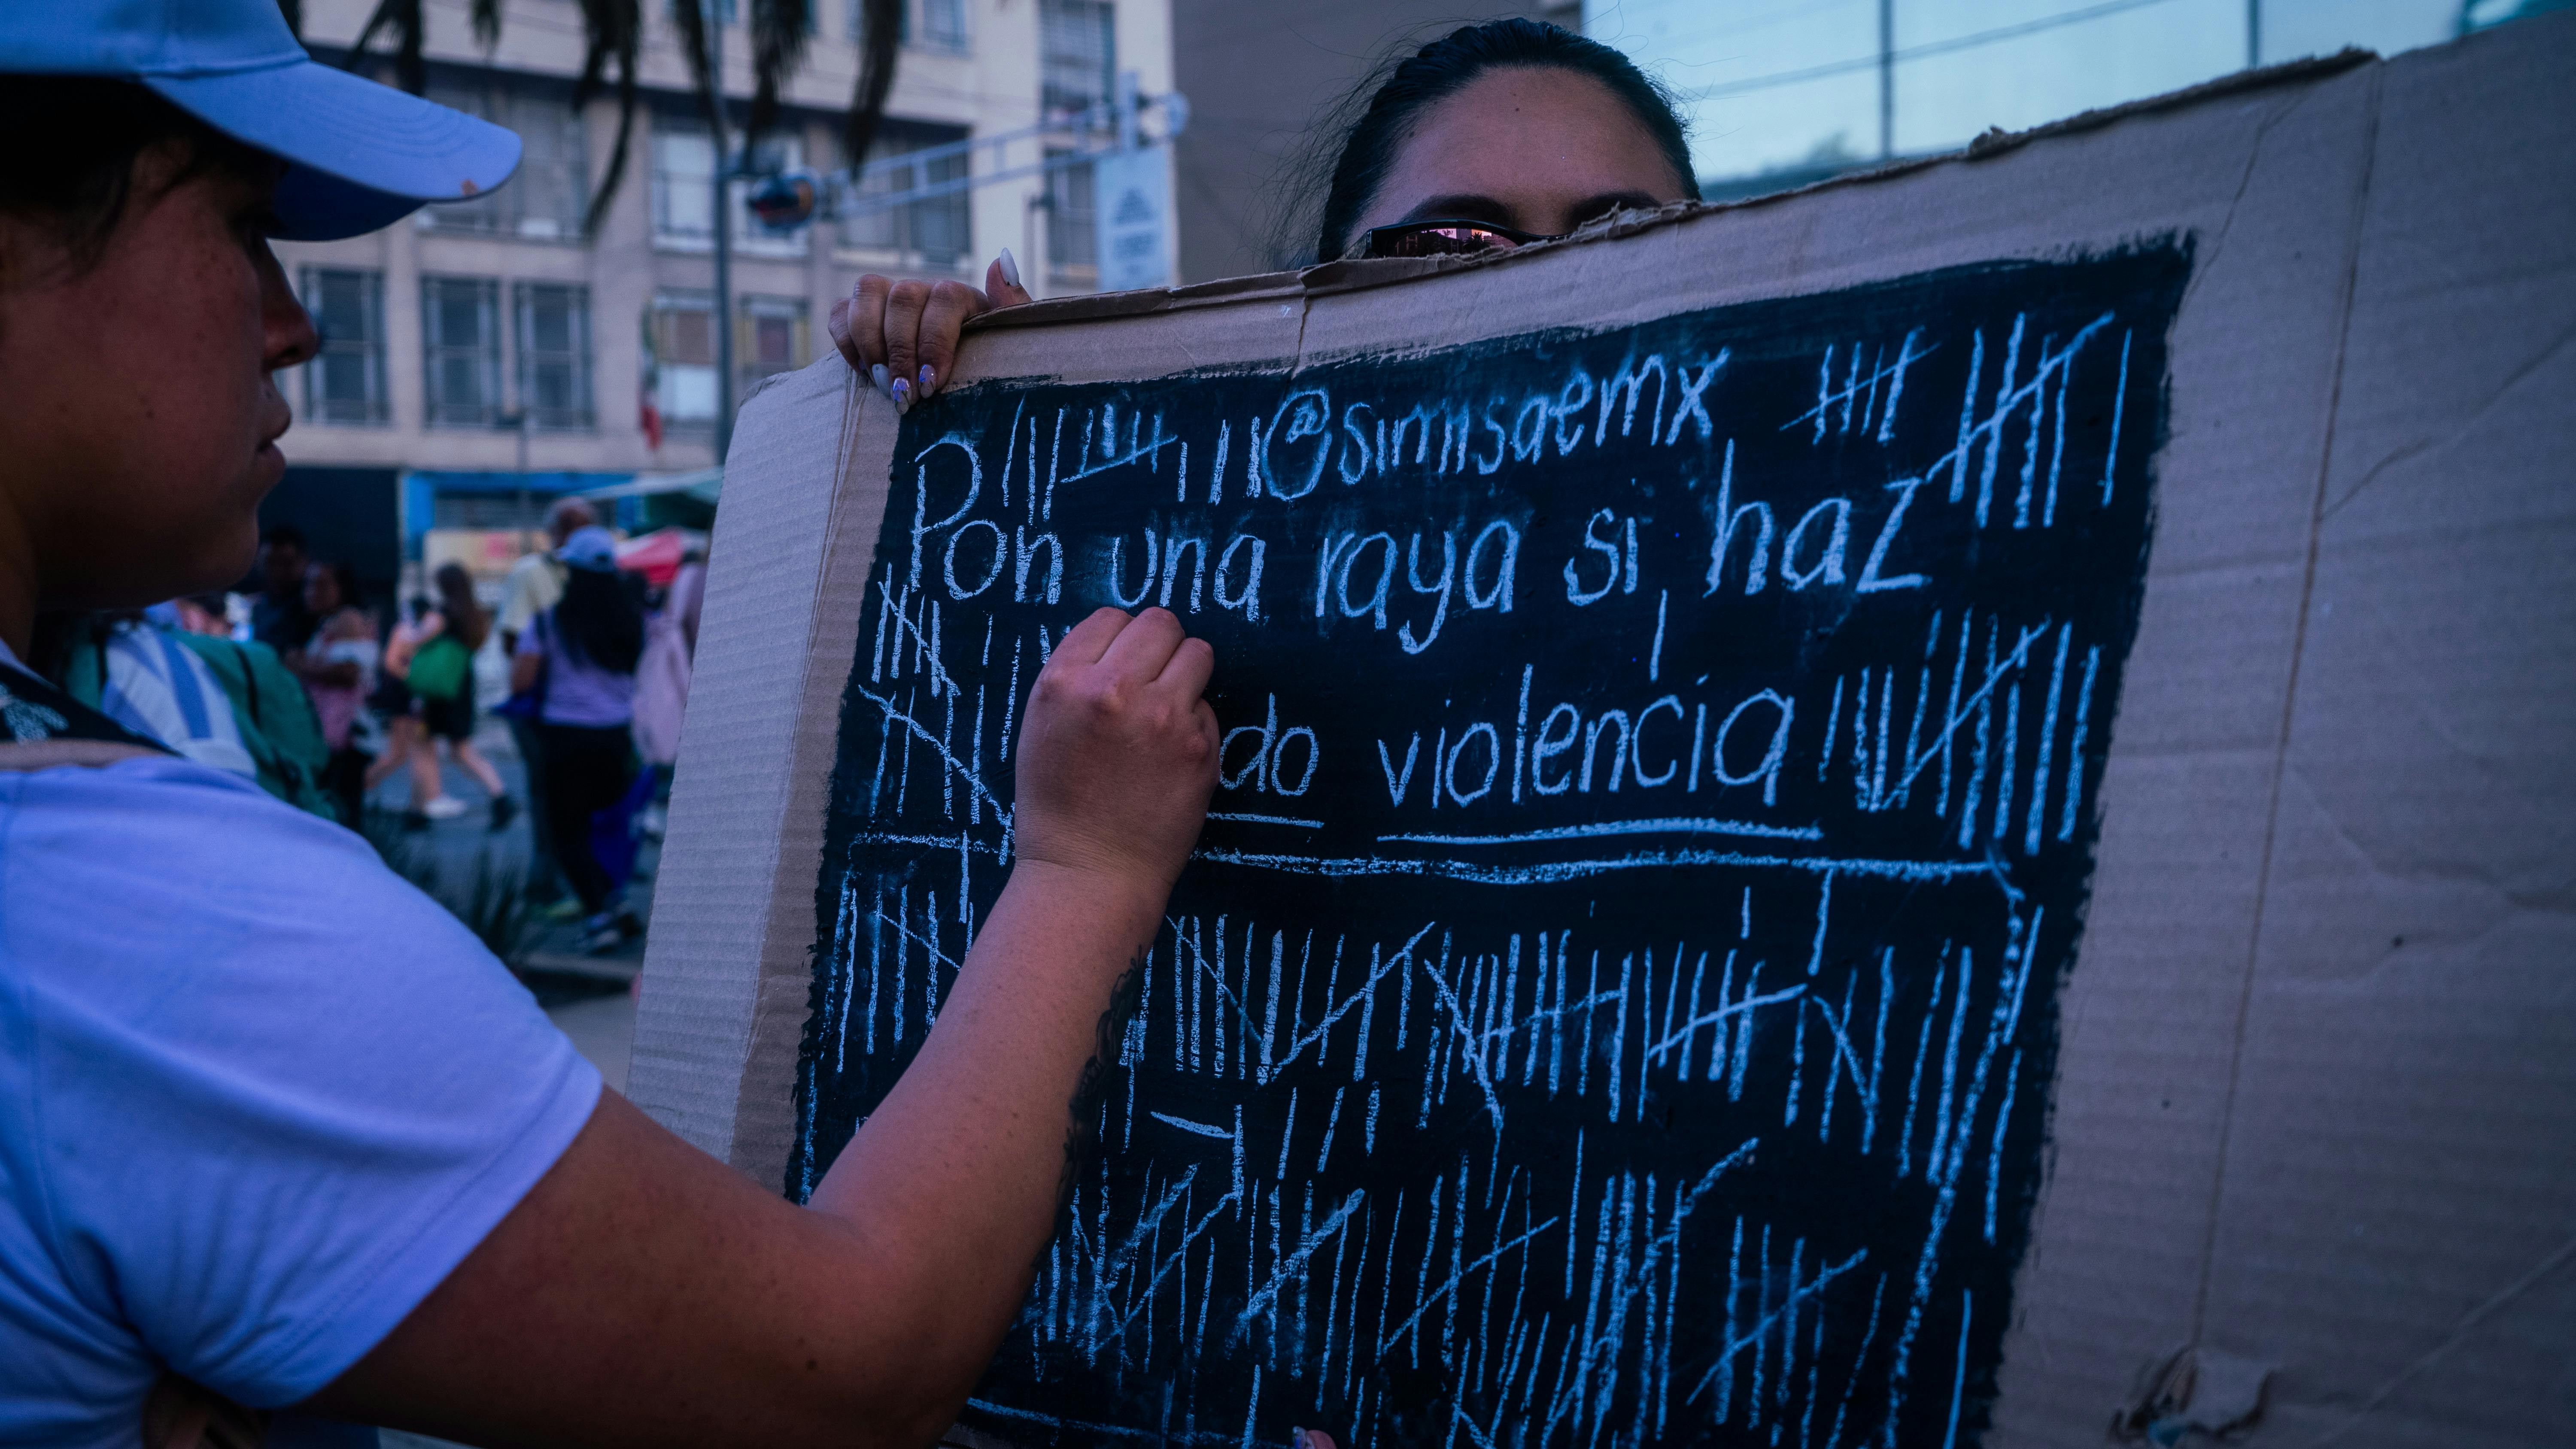 @simisaemx
Pon una raya si haz
do violencia